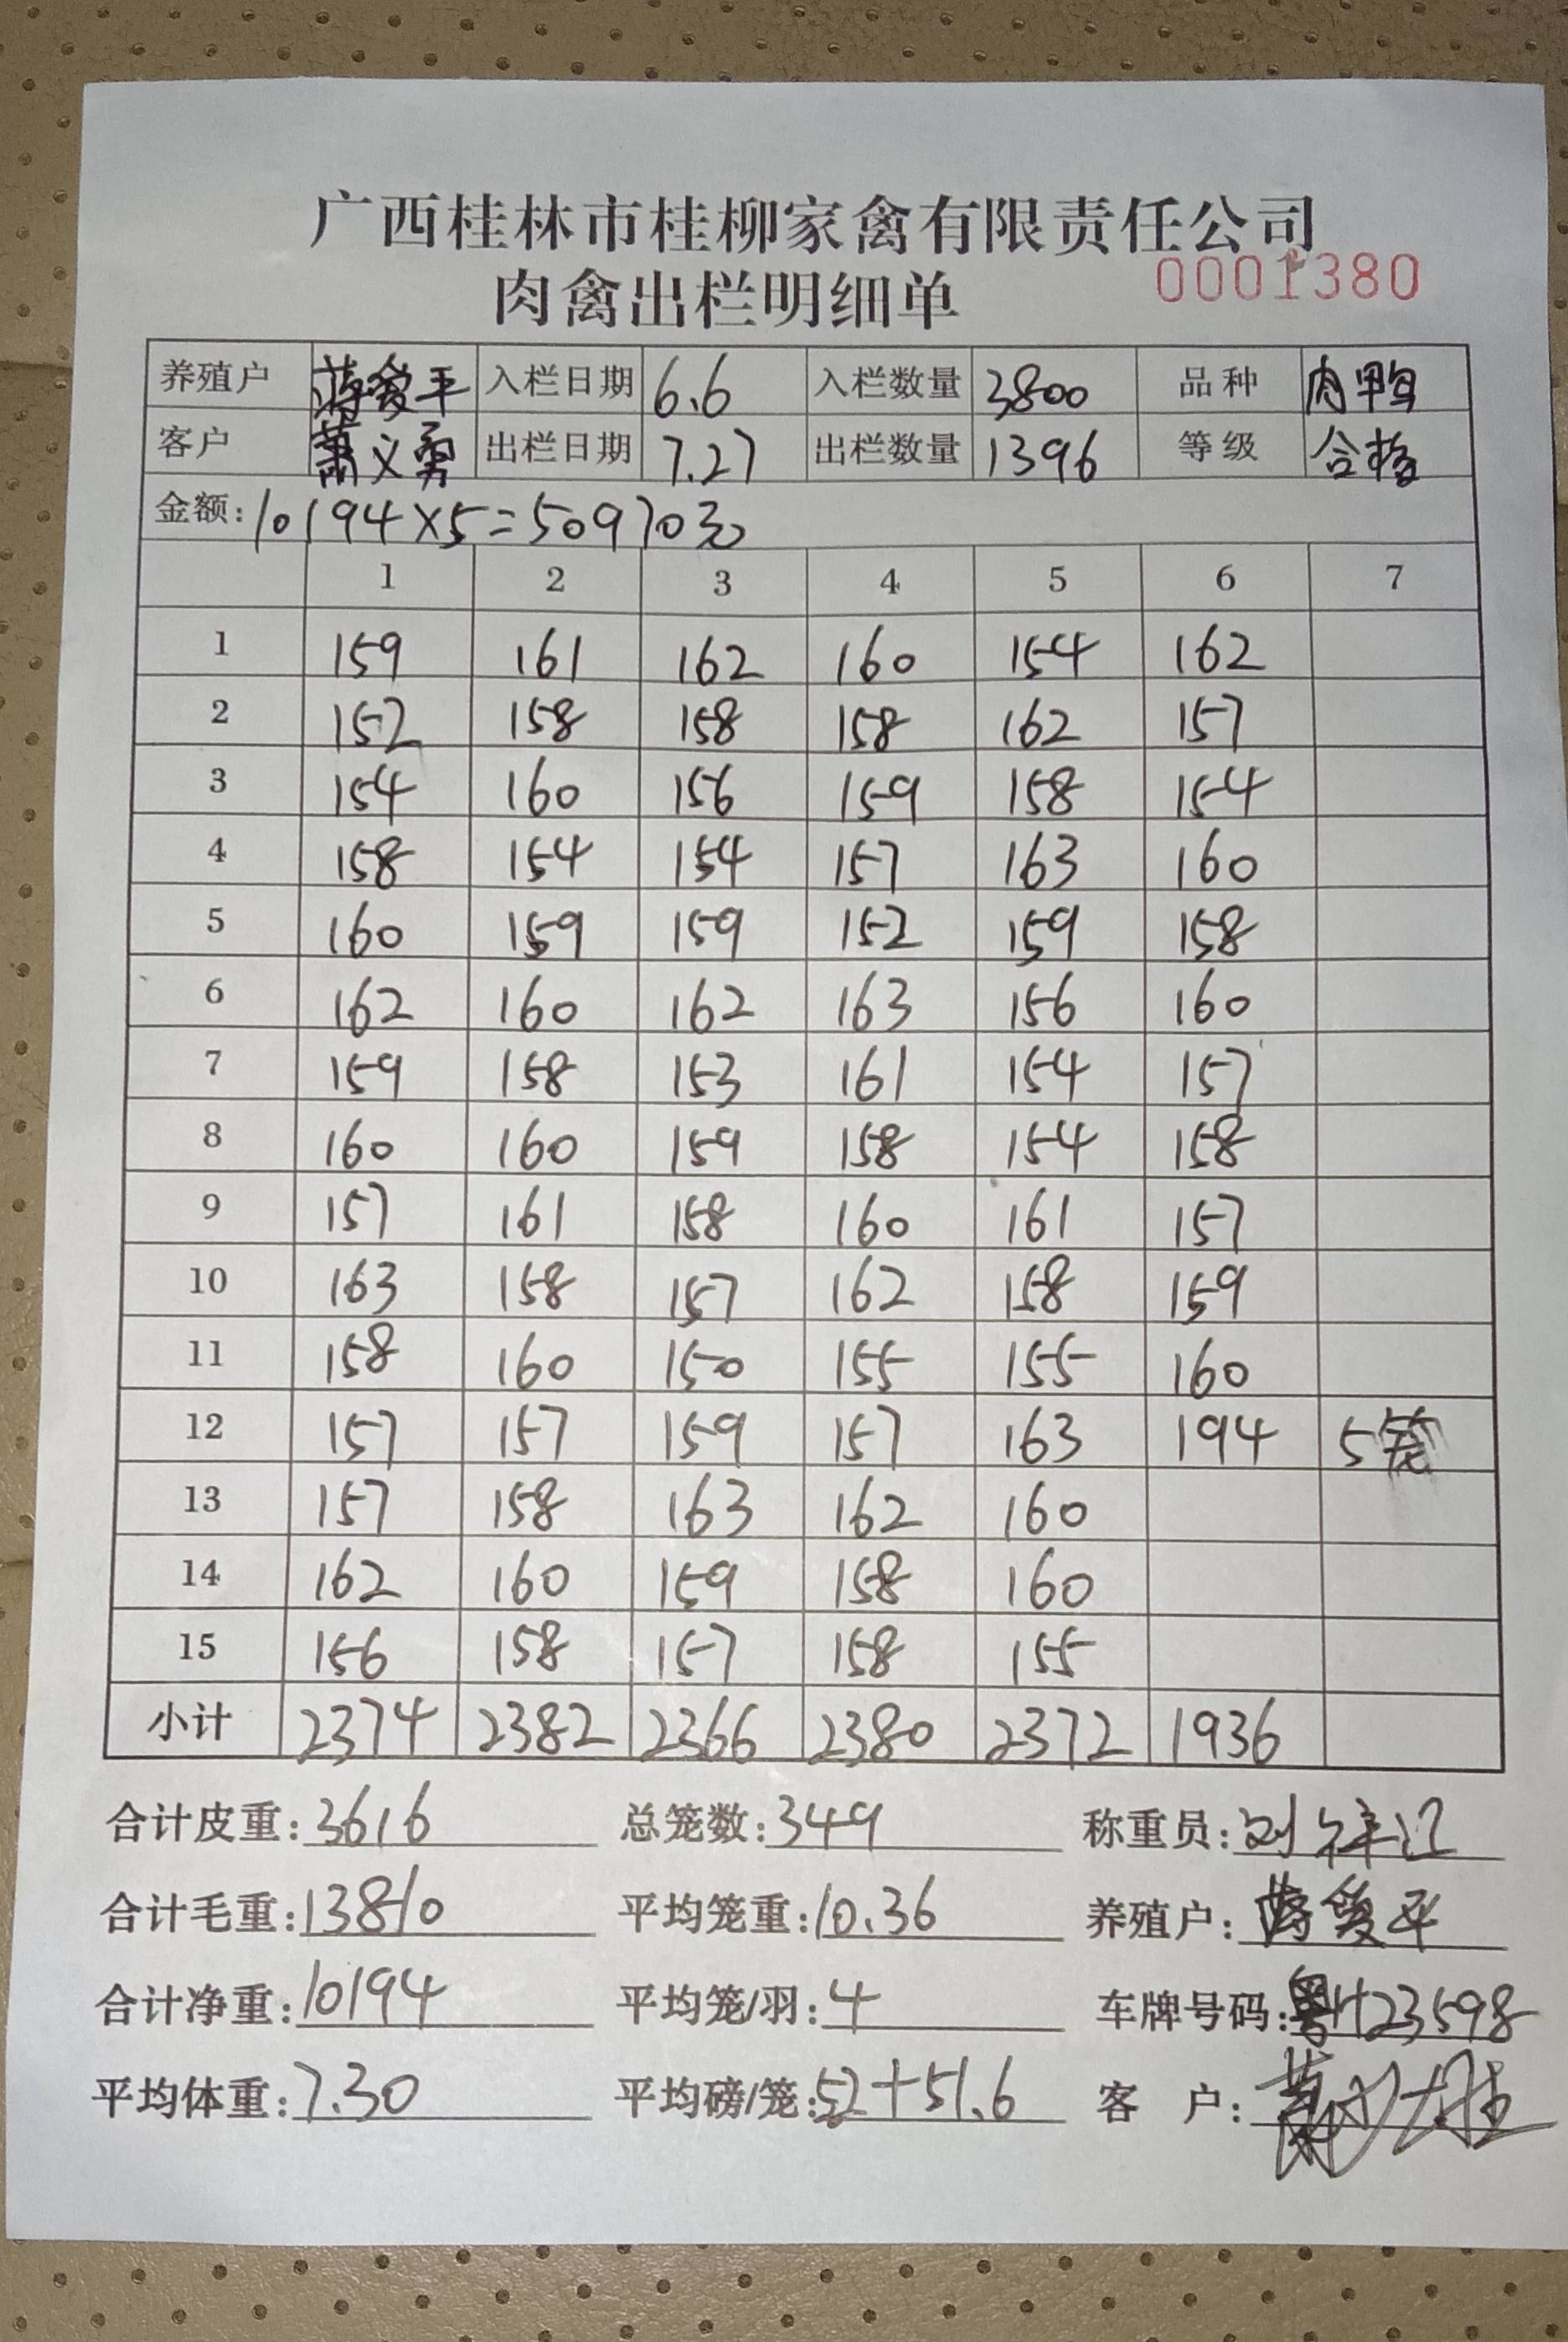 广西桂林市桂柳家禽有限责任公司
肉禽出栏明细单 0001380
养殖户 蒋爱平 入栏日期 6.6 入栏数量 3800 品种 肉鸭
客户 萧义勇 出栏日期 7.27 出栏数量 1396 等级 合格
金额:10194×5=50970元
1 2 3 4 5 6 7
1 159 161 162 160 154 162
2 152 158 158 158 162 157
3 154 160 156 159 158 154
4 158 154 154 157 163 160
5 160 159 159 152 159 158
6 162 160 162 163 156 160
7 159 158 153 161 154 157
8 160 160 159 158 154 158
9 157 161 158 160 161 157
10 163 158 157 162 158 159
11 158 160 150 155 155 160
12 157 157 159 157 163 194 5笼
13 157 158 163 162 160
14 162 160 159 158 160
15 156 158 157 158 155
小计 2374 2382 2366 2380 2372 1936
合计皮重:3616 总笼数:349 称重员:刘祥江
合计毛重:13810 平均笼重:10.36 养殖户:蒋爱平
合计净重:10194 平均笼/羽:4 车牌号码:粤H23598
平均体重:7.30 平均磅/笼:52+51.6 客 户: